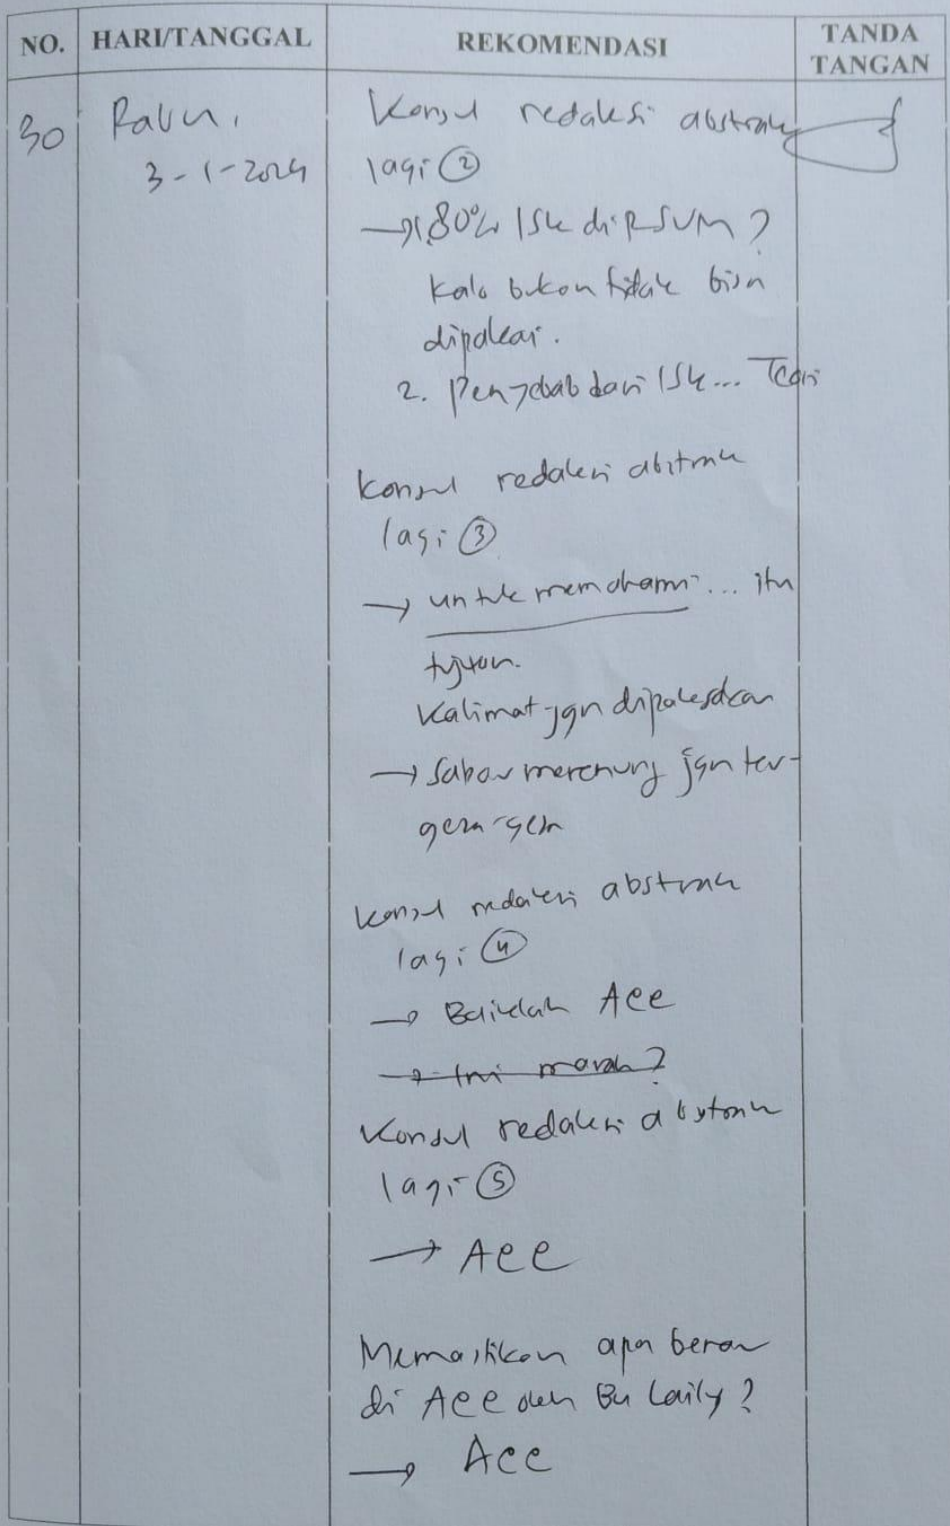 NO. HARI/TANGGAL REKOMENDASI TANDA TANGAN
30 Rabu, Konsul redaksi abstrak
3-1-2024 lagi ②
→ 1. 80% ISK di RSUM?
Kalo bukan tidak bisa
dipakai.
2. Penyebab dari ISK... Teori
Konsul redaksi abstrak
lagi ③
→ untuk memahami... itu
tujuan.
Kalimat jgn dipaksakan
→ Sabar merenung jgn ter-
gesa-gesa
Konsul redaksi abstrak
lagi ④
→ Baiklah Acc
→ Ini marah?
Konsul redaksi abstrak
lagi ⑤
→ Acc
Memastikan apa benar
di Acc oleh Bu Laily?
→ Acc